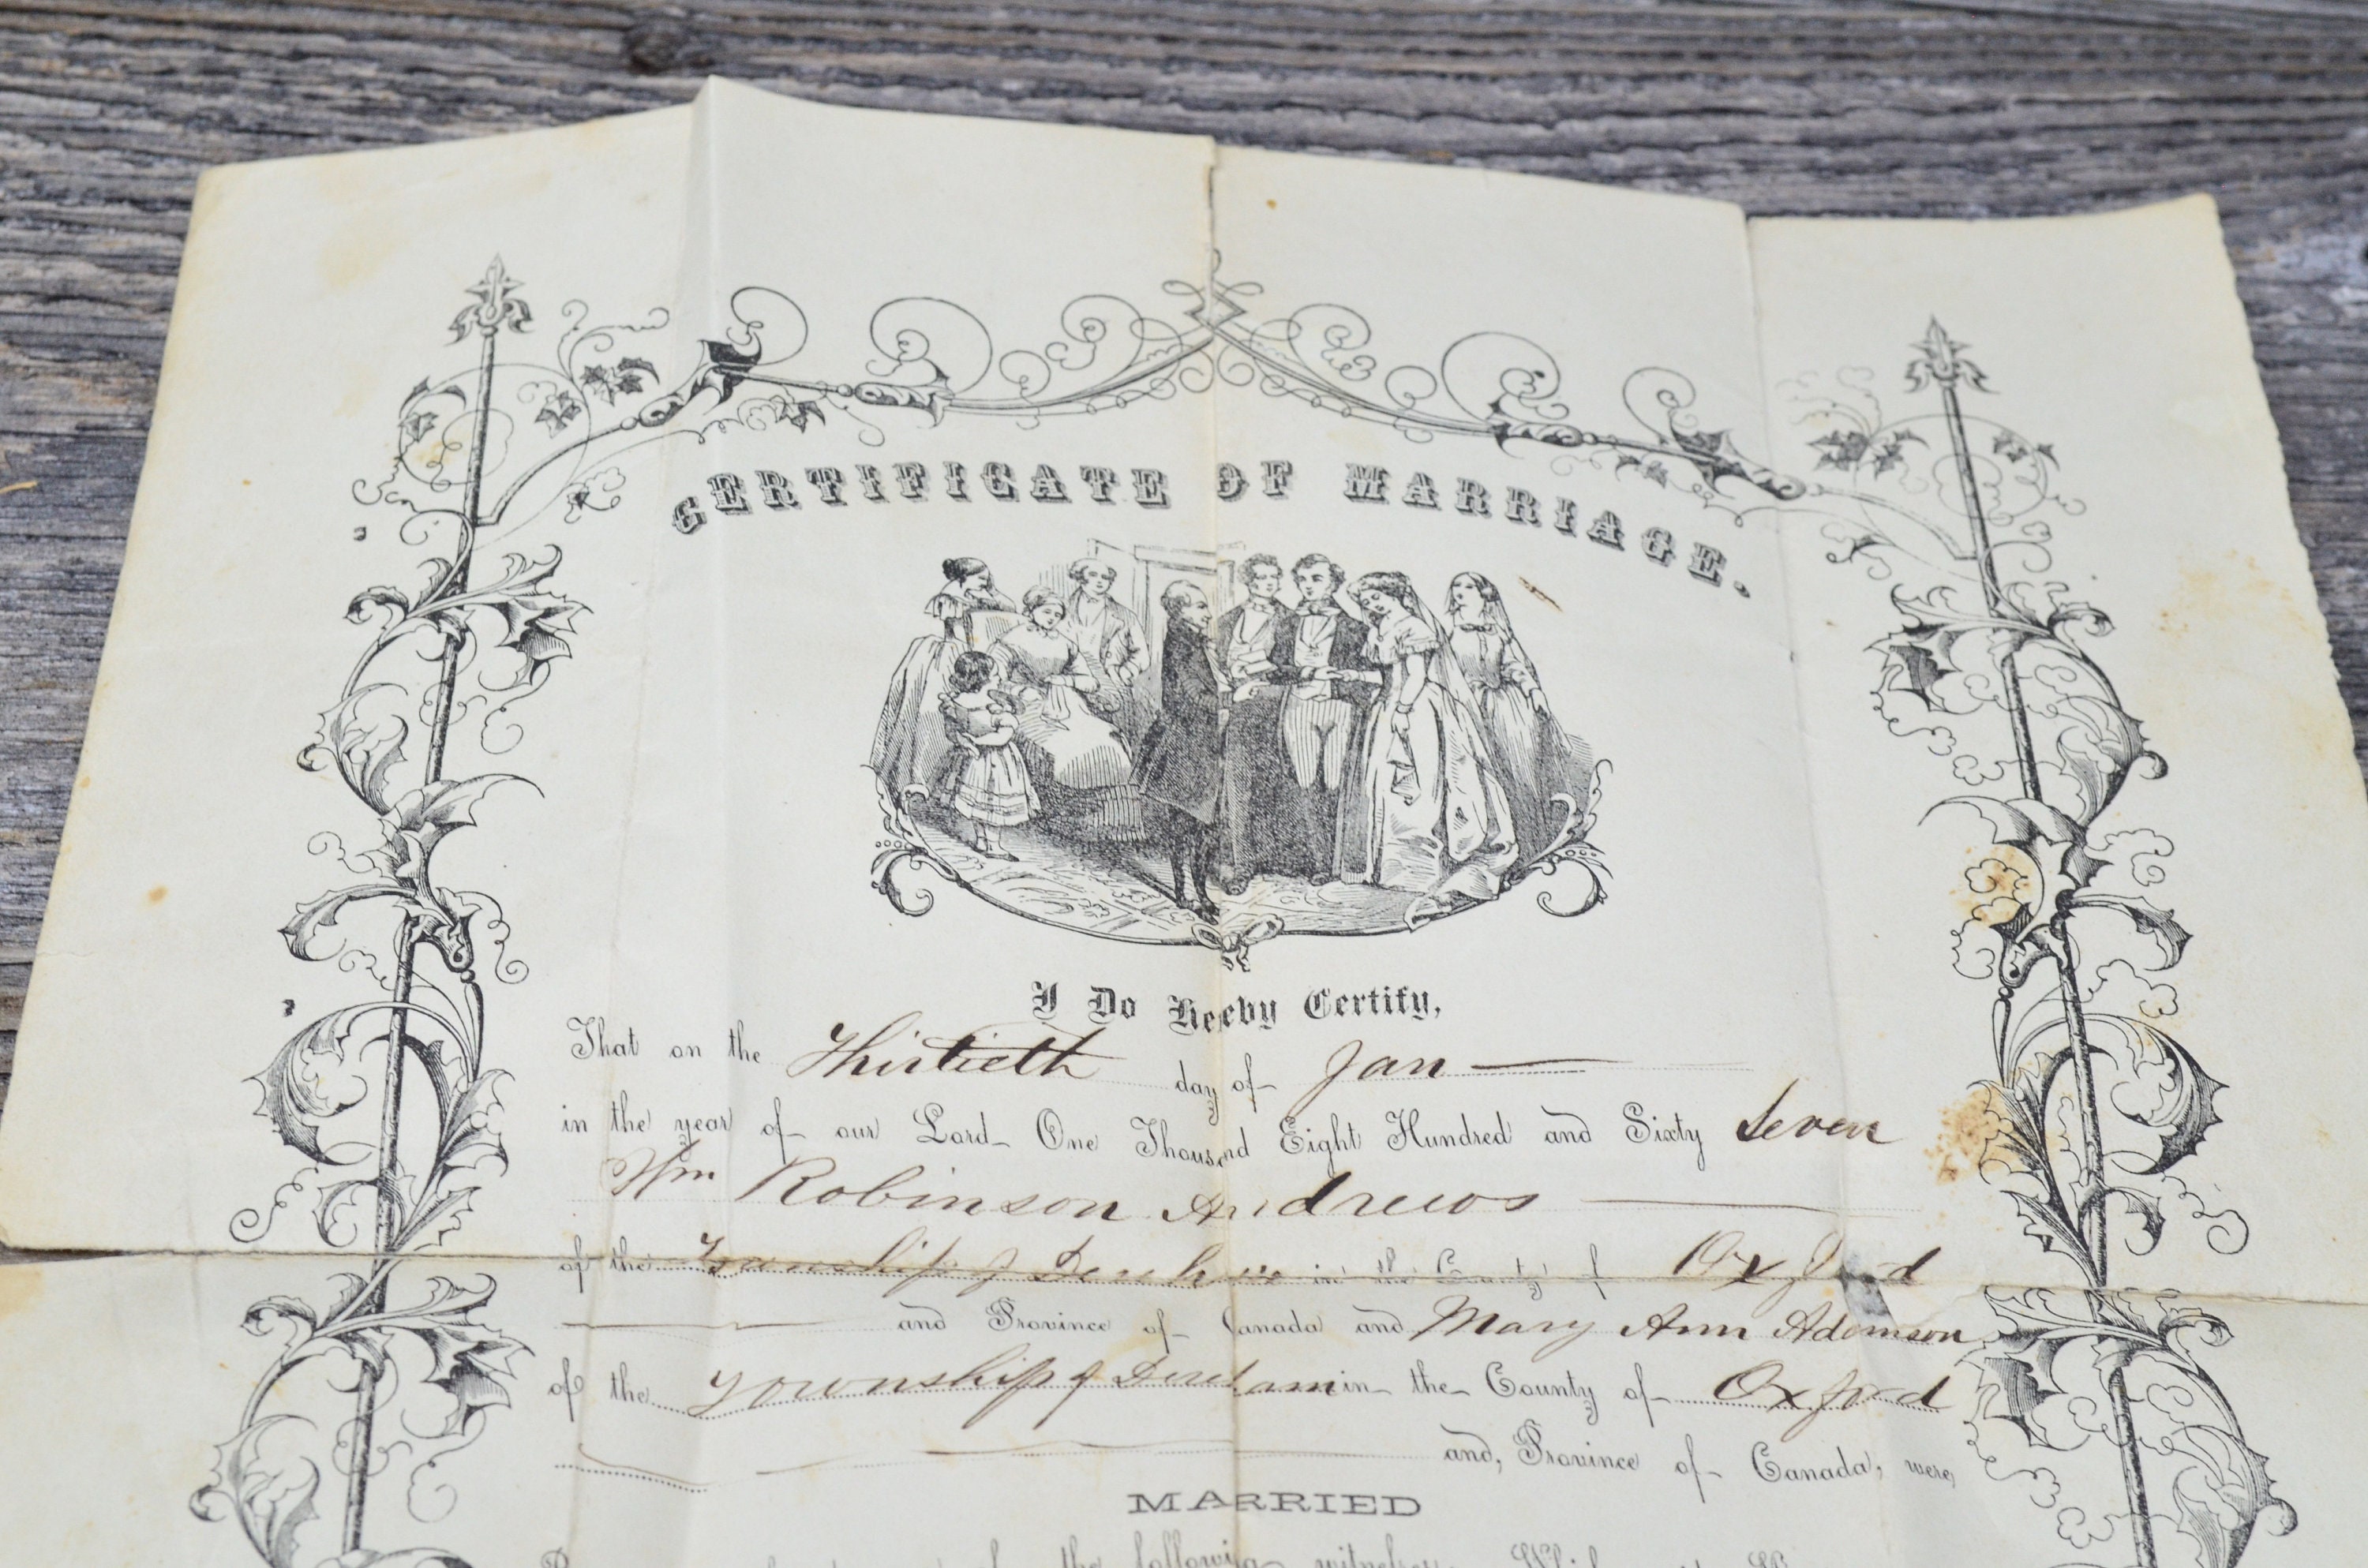 CERTIFICATE OF MARRIAGE.
I Do Hereby Certify,
That on the Thirtieth day of Jan
in the year of our Lord One Thousand Eight Hundred and Sixty Seven
Wm Robinson Andrews
of the Township of Dereham in the County of Oxford
and Province of Canada and Mary Ann Adamson
of the Township of Dereham in the County of Oxford
and, Province of Canada, were,
MARRIED
the following witnesses